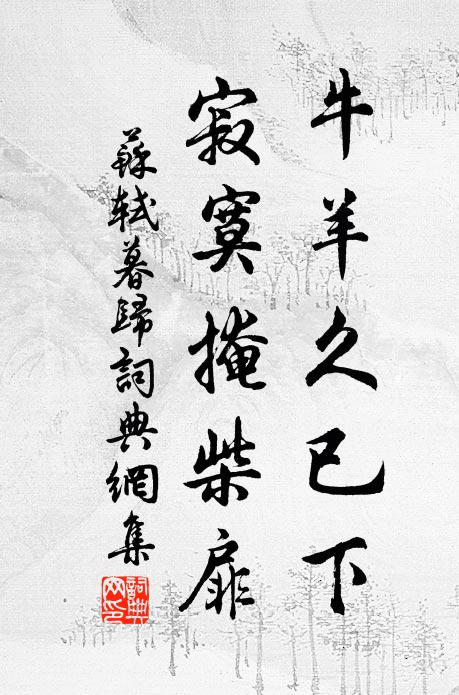 牛羊久已下
寂寞掩柴扉
蘇軾暮歸詞典網集
詞典網印